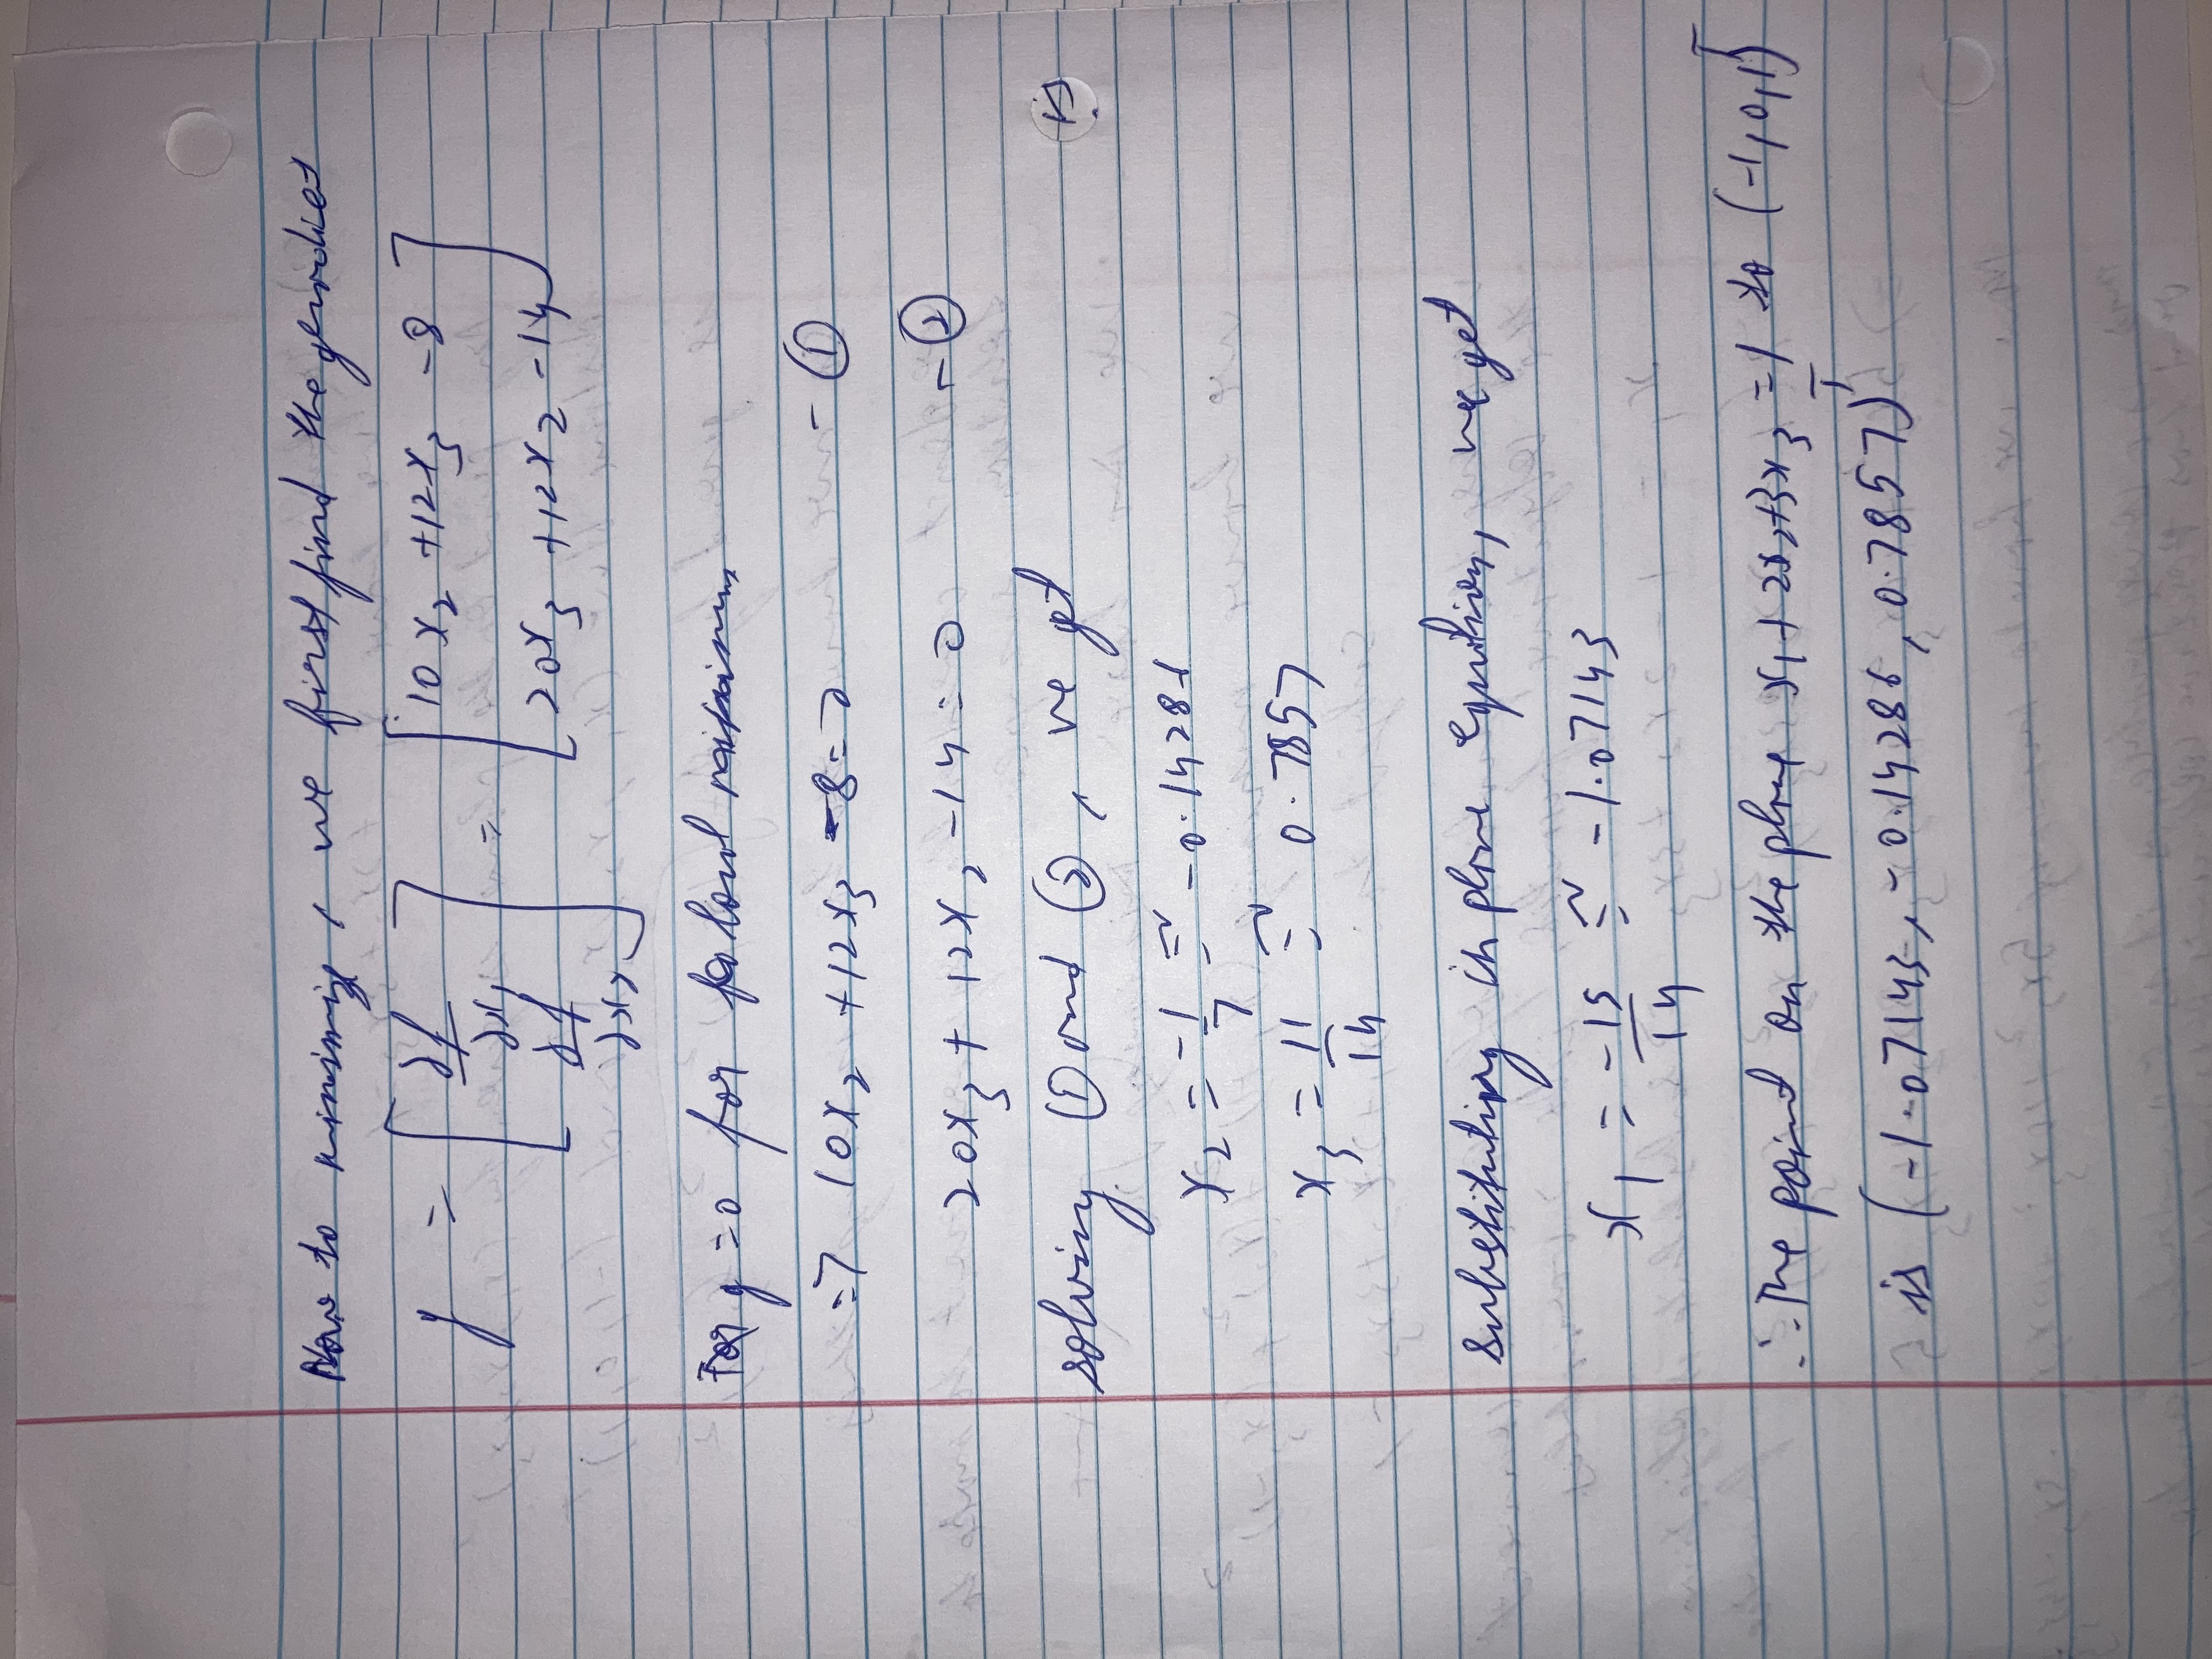 Now to minimize, we first find the gerodient
g = [ ∂f/∂x1 ∂f/∂x2 ] = [ 10x2 + 12x3 - 8 20x3 + 12x2 - 14 ]
For g = 0 for local minimum
=> 10x2 + 12x3 - 8 = 0 - ①
20x3 + 12x2 - 14 = 0 - ②
solving ① and ②, we get
x2 = -1/7 ≅ -0.14286
x3 = 11/14 ≅ 0.7857
Substituting in plane equation, we get
x1 = -15/14 ≅ -1.07143
∴ The point on the plane x1 + 2x2 + 3x3 = 1 to (-1, 0, 1)T
is (-1.07143, -0.14286, 0.7857)T